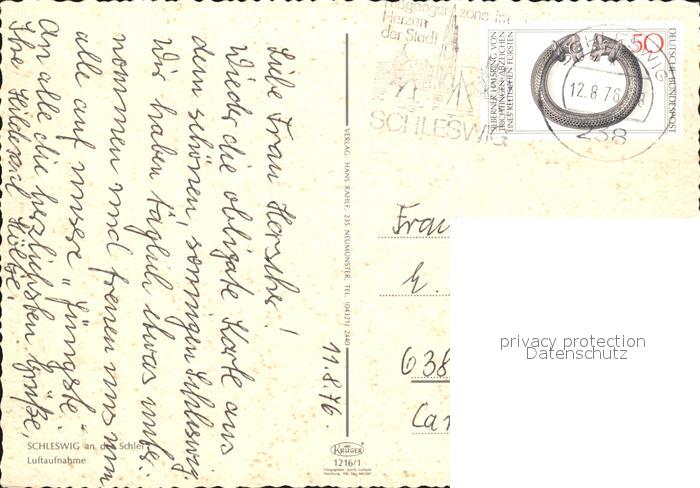 Liebe Frau Hersche!
Wieder die obligate Karte aus
dem schönen, sonnigen Schleswig.
Wir haben täglich etwas unter-
nommen und freuen uns nun
alle auf unsere "Jüngste".
An alle die herzlichsten Grüße,
Ihre
11.8.76.
SCHLESWIG an der Schlei
Luftaufnahme
VERLAG: HANS RAHLF, 235 NEUMÜNSTER, TEL. (04321) 2440
KRÜGER
1216/1
Fußgängerzone im
Herzen
der Stadt
SCHLESWIG
SCHLESWIG
12.8.76
238
50
DEUTSCHE BUNDESPOST
SILBERNER HALSRING VON
TRICHTINGEN · ABZEICHEN
EINES KELTISCHEN FÜRSTEN
Frau
E.
638
privacy protection
Datenschutz